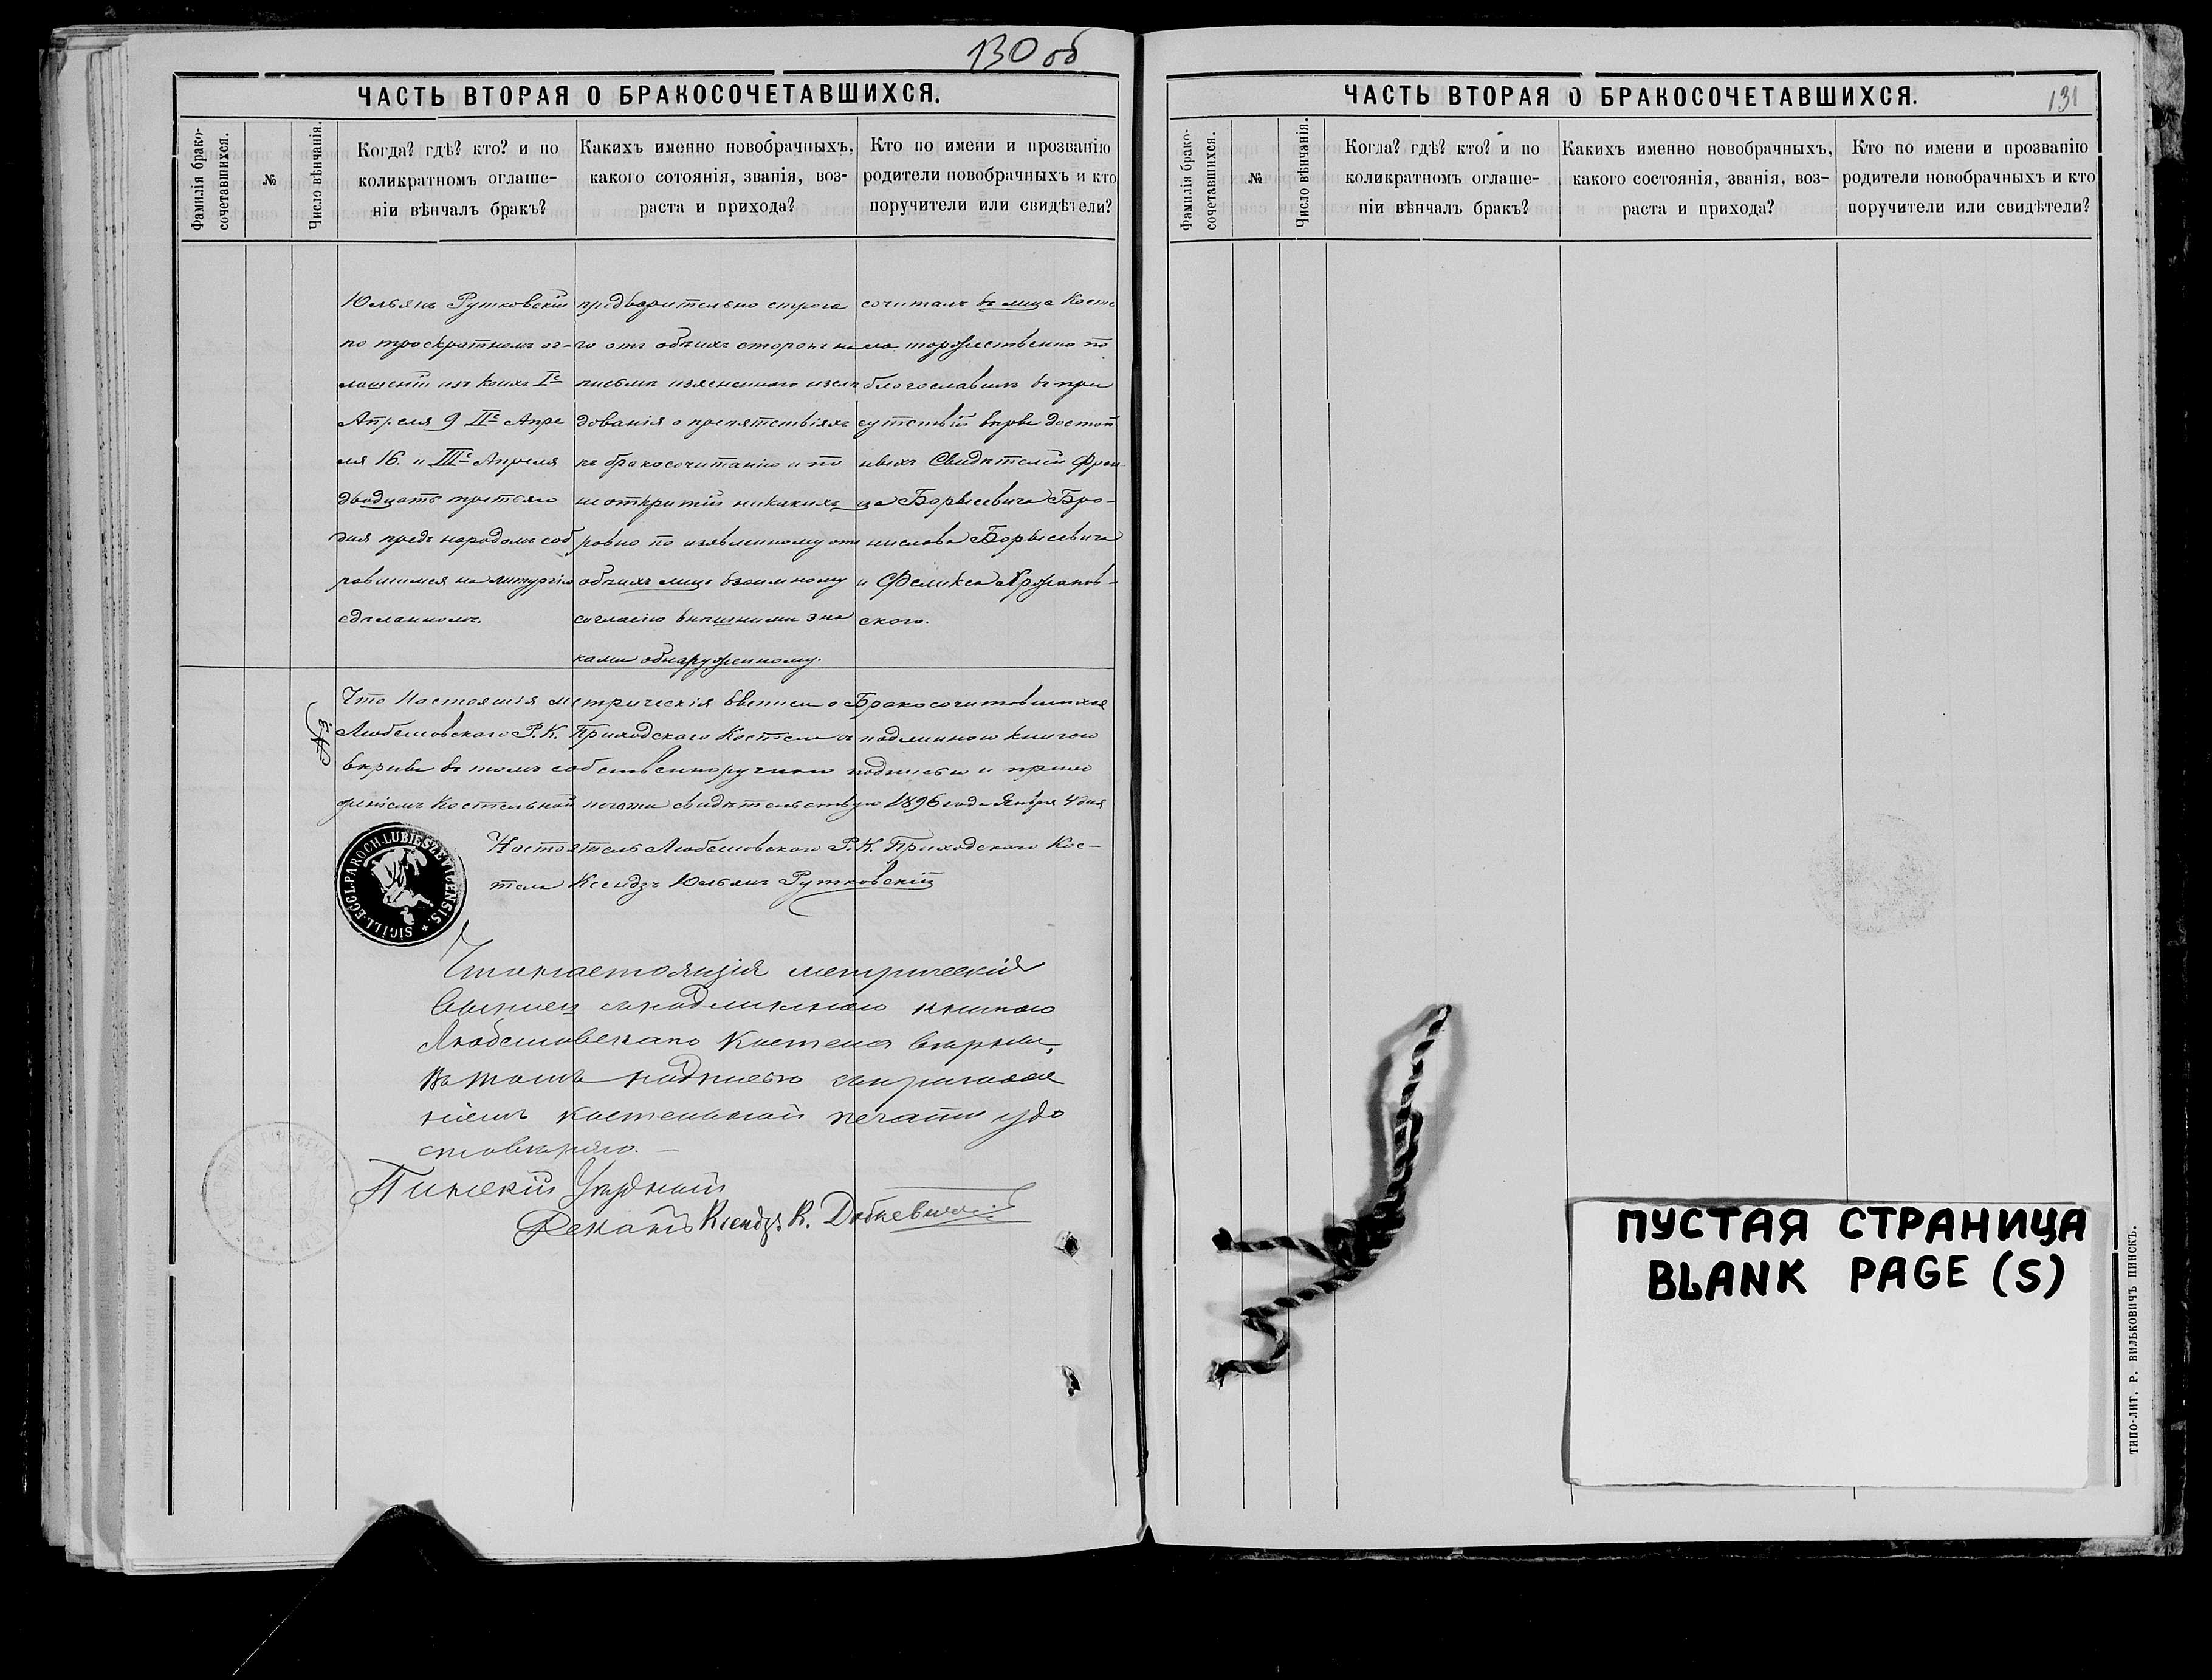 130 об
ЧАСТЬ ВТОРАЯ О БРАКОСОЧЕТАВШИХСЯ.
Фамилія брако-
сочетавшихся.
№
Число вѣнчанія.
Когда? гдѣ? кто? и по
коликратномъ оглаше-
ніи вѣнчалъ бракъ?
Какихъ именно новобрачныхъ,
какого сотоянія, званія, воз-
раста и прихода?
Кто по имени и прозванію
родители новобрачныхъ и кто
поручители или свидѣтели?
Юльянъ Рутковскій
по троекратномъ ог-
лашеніи изъ коихъ Iе
Апреля 9 IIе Апре
ля 16. и IIIе Апреля
двадцать третьяго
дня предъ народомъ соб
равшимся на литургію
сдѣланномъ.
предварительно строга
го отъ обѣихъ сторонъ на
письмѣ изясненнаго изслѣ
дованія о препятствіяхъ
къ бракосочитанію и по
не открытіи никакихъ
равно по изявленному отъ
обѣихъ лицъ взаимному
согласію внѣшними зна
ками обнаруженному.
сочиталъ въ лице Косте
ла торжественно по
благославилъ въ при
сутствіи вѣры достой
ныхъ Свидѣтелей Фран
ца Борысевича Бро-
нислава Борысевича
и Феликса
ского.
Что настоящія метрическія выписи о Бракосочитавшихся
Любешовскаго Р.К. Приходскаго Костела съ подлинною книгою
вѣрны въ томъ собственноручною подписью и прило
женіемъ Костельной печати свидѣтельствую 1896 года Января 4 дня
Настоятель Любешовскаго Р.К. Приходскаго Кос-
тела Ксендзъ Юльянъ Рутковскій
SIGILL. ECCL. PAROCH. LUBIESZEVIENSIS.
Что настоящія метрическія
выписи съ подлинною книгою
Любешовскаго Костела вѣрны,
въ томъ подписью съ приложе
ніемъ костельной печати удо
стовѣряю. —
Пинскій Уѣздный
Деканъ Ксендзъ К.
ЧАСТЬ ВТОРАЯ О БРАКОСОЧЕТАВШИХСЯ.
131
Фамилія брако-
сочетавшихся.
№
Число вѣнчанія.
Когда? гдѣ? кто? и по
коликратномъ оглаше-
ніи вѣнчалъ бракъ?
Какихъ именно новобрачныхъ,
какого состоянія, званія, воз-
раста и прихода?
Кто по имени и прозванію
родители новобрачныхъ и кто
поручители или свидѣтели?
ПУСТАЯ СТРАНИЦА
BLANK PAGE (S)
ТИПО-ЛИТ. Р. ВИЛЬКОВИЧЪ ПИНСКЪ.